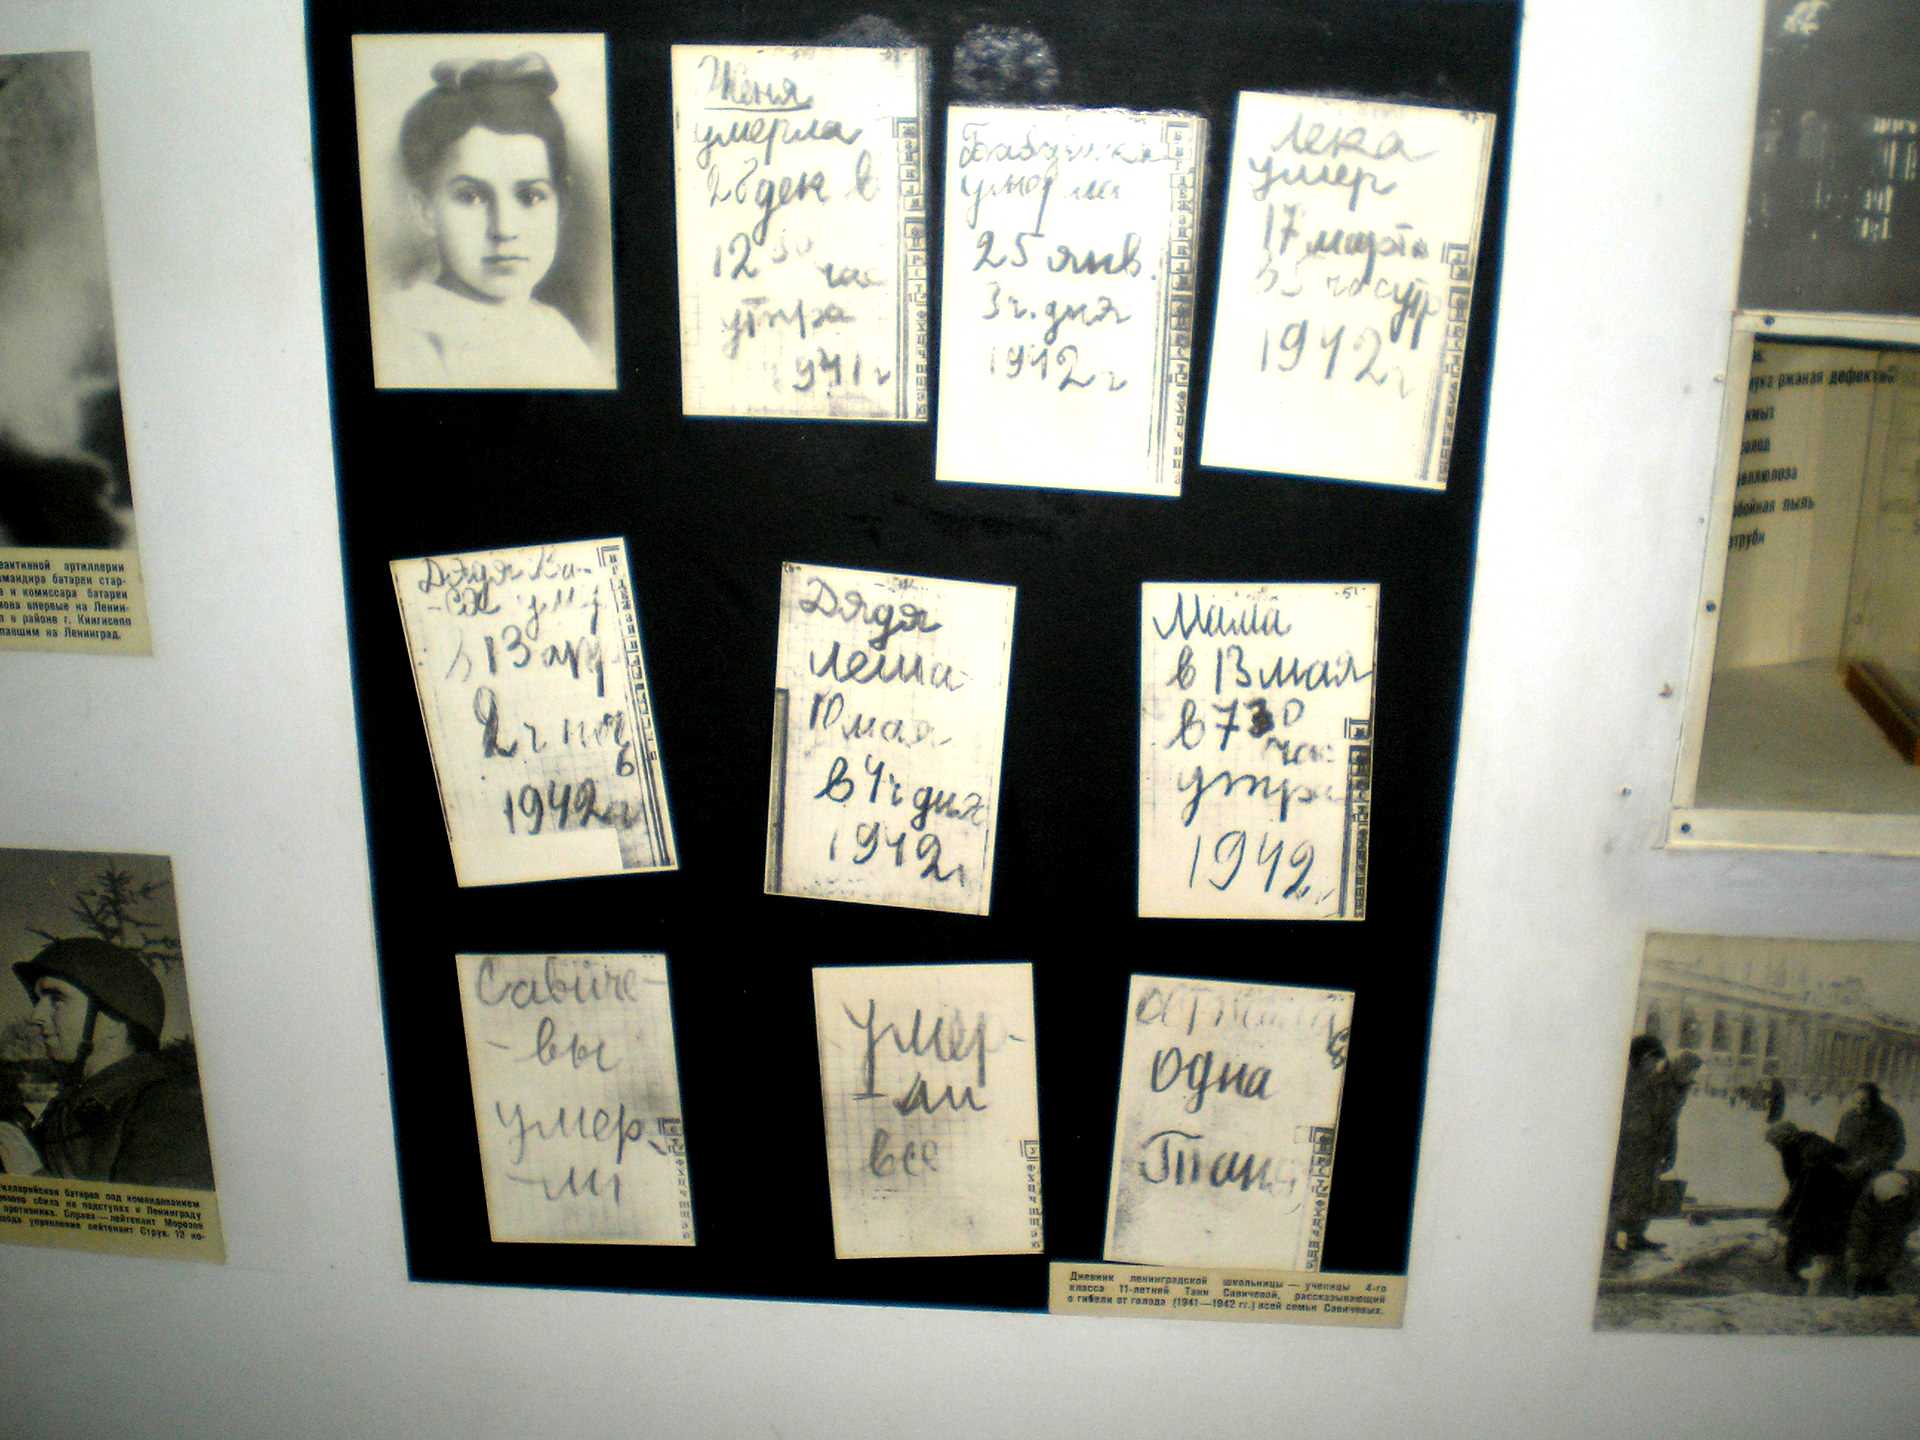 Женя
умерла
28 ден в
12 30 час
утра
1941 г
Бабушка
умерла
25 янв.
3 ч. дня
1942 г
Лека
умер
17 марта
в 5 час утр
1942 г
Дядя Ва-
-ся умер
в 13 апр
2 ч ноч
ь
1942 г
Дядя
Леша
10 мая
в 4 ч дня
1942 г
Мама
в 13 мая
в 7 30
час
утра
1942 г
Савиче-
-вы
умер-
-ли
Умер-
-ли
все
Осталась
одна
Таня
Дневник ленинградской школьницы — ученицы 4-го
класса 11-летней Тани Савичевой, рассказывающий
о гибели от голода (1941—1942 гг.) всей семьи Савичевых.
реактивной артиллерии
командира батареи стар-
а и комиссара батареи
впервые на Ленин-
в районе г. Кингисепп
на Ленинград.
батарея под командованием
сбила на подступах к Ленинграду
противника. Справа — лейтенант Морозов
взвода управления лейтенант Струк. 12 но-
мука ржаная дефектная
жмых
солод
целлюлоза
обойная пыль
отруби